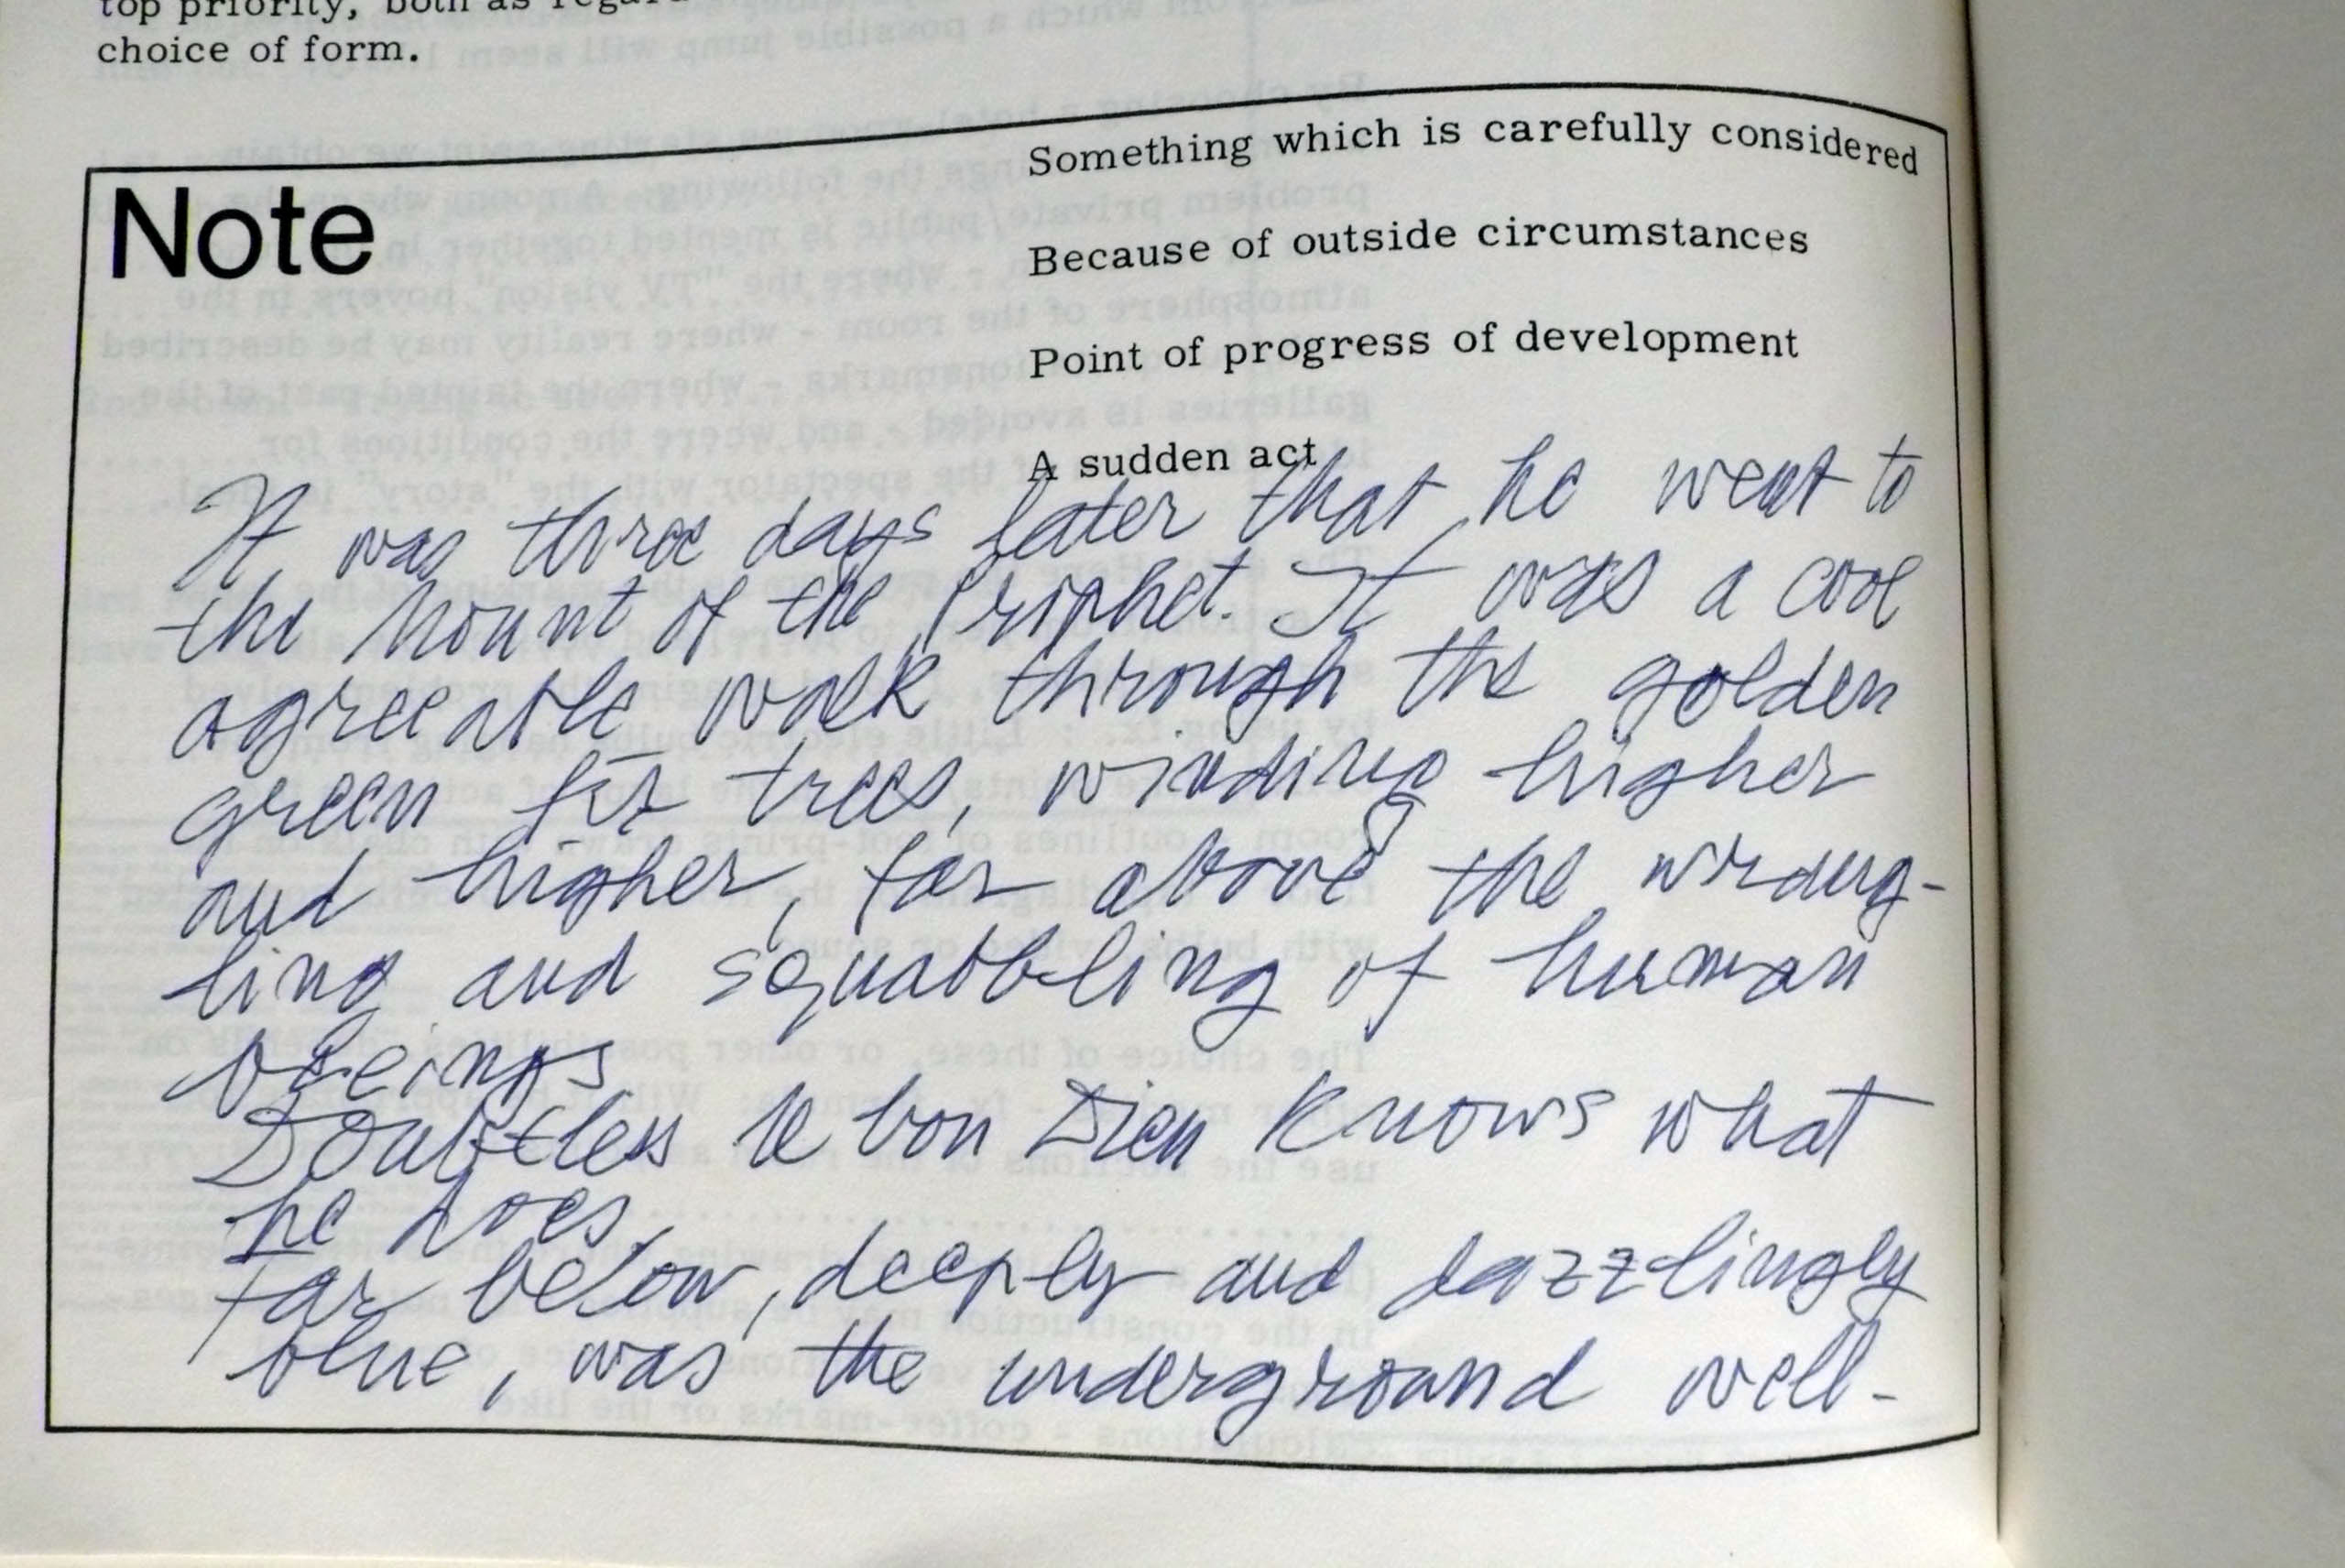 top priority, both as regard
choice of form.
Note
Something which is carefully considered
Because of outside circumstances
Point of progress of development
A sudden act
It was three days later that he went to
the Mount of the Prophet. It was a cool
agreeable walk through the golden
green fir trees, winding higher
and higher, far above the wrang-
ling and squabbling of human
beeings
Doubtless le bon Dieu knows what
he does.
Far below, deeply and dazzlingly
blue, was the underground well-